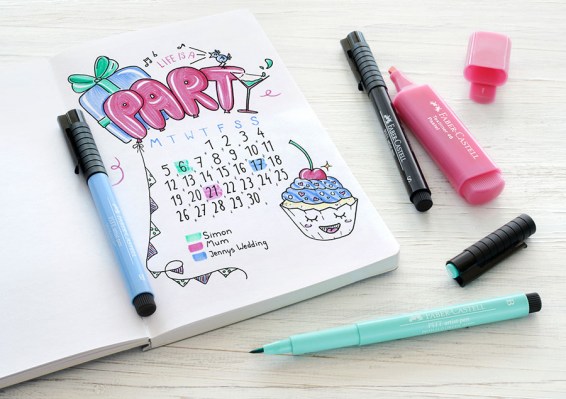 LIFE IS A
PARTY
M T W T F S S
1 2 3 4
5 6 7 8 9 10 11
12 13 14 15 16 17 18
19 20 21 22 23 24 25
26 27 28 29 30
Simon
Mum
Jennys Wedding
FABER-CASTELL
FABER-CASTELL
Textliner 46
Pastel
FABER-CASTELL
PITT artist pen
B